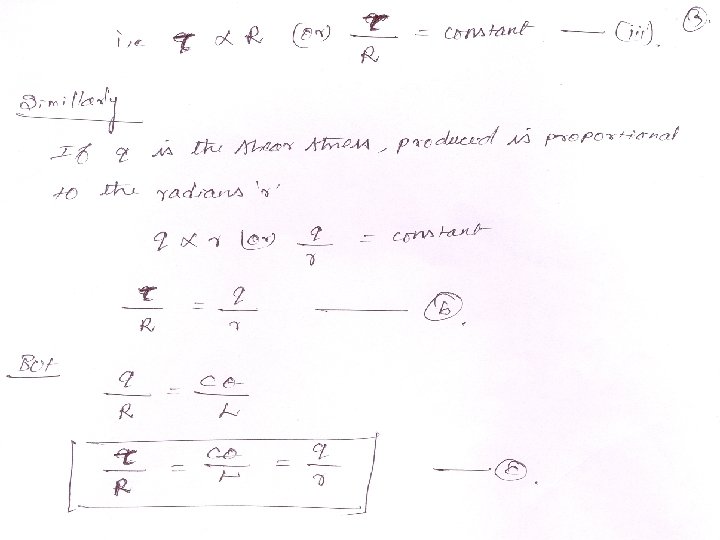 i.e τ ∝ R (or) τ/R = constant — (iii). ③
Similarly
If q is the shear stress, produced is proportional
to the radians 'r'
q ∝ r (or) q/r = constant
τ/R = q/r — ⓑ.
But
q/R = Cθ/L
τ/R = Cθ/L = q/r — ⓒ.